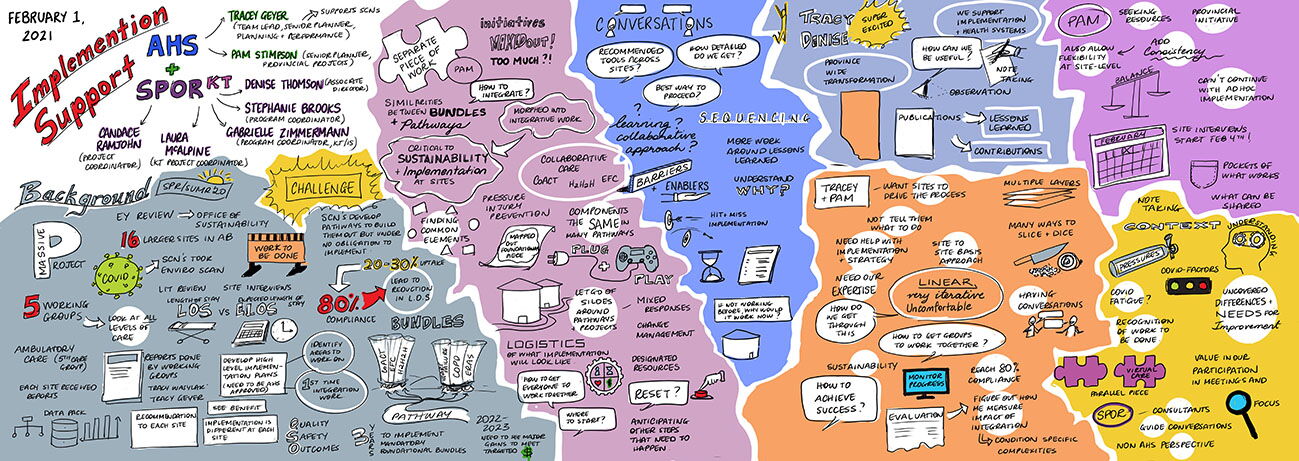 FEBRUARY 1,
2021
Implemention
Support
AHS
+
SPOR KT
TRACEY GEYER
(TEAM LEAD, SENIOR PLANNER,
PLANNING + PERFORMANCE)
SUPPORTS SCNS
PAM STIMPSON (SENIOR PLANNER,
PROVINCIAL PROJECTS)
DENISE THOMSON (ASSOCIATE
DIRECTOR)
STEPHANIE BROOKS
(PROGRAM COORDINATOR)
GABRIELLE ZIMMERMANN
(PROGRAM COORDINATOR, KT/IS)
LAURA
MCALPINE
(KT PROJECT COORDINATOR)
CANDACE
RAMJOHN
(PROJECT
COORDINATOR)
Background
SPR/SUMR2.0
CHALLENGE
EY REVIEW → OFFICE OF
SUSTAINABILITY
MASSIVE
PROJECT
16 LARGER SITES IN AB
COVID
SCN'S TOOK
ENVIRO SCAN
WORK TO
BE DONE
5 WORKING
GROUPS
LOOK AT ALL
LEVELS OF
CARE
LIT REVIEW
SITE INTERVIEWS
LENGTH OF STAY
EXPECTED LENGTH OF STAY
LOS VS ELOS
AMBULATORY
CARE (5TH CARE
GROUP)
EACH SITE RECEIVED
REPORTS
REPORTS DONE
BY WORKING
GROUPS
TRACY WASYLAK
TRACY GEYER
DEVELOP HIGH
LEVEL IMPLEMEN-
TATION PLANS
(NEED TO BE AHS
APPROVED)
DATA PACK
RECOMMENDATION
TO EACH SITE
SEE BENEFIT
IMPLEMENTATION IS
DIFFERENT AT EACH
SITE
SCN'S DEVELOP
PATHWAYS TO BUILD
THEM OUT BUT UNDER
NO OBLIGATION TO
IMPLEMENT
20-30% UPTAKE
80%
COMPLIANCE
LEAD TO
REDUCTION
IN L.O.S
BUNDLES
IDENTIFY
AREAS TO
WORK ON
1ST TIME
INTEGRATION
WORK
COACT
EFC
H2H2H
COPD
ERAS
PATHWAY
QUALITY
SAFETY
OUTCOMES
3 YEARS
TO IMPLEMENT
MANDATORY
FOUNDATIONAL BUNDLES
2022-
2023
NEED TO BE MAJOR
GAINS TO MEET
TARGETED $
SEPARATE
PIECE OF
WORK
PAM
initiatives
MAXED OUT!
TOO MUCH?!
HOW TO
INTEGRATE?
SIMILARITIES
BETWEEN BUNDLES
+ Pathways
MORPHED INTO
INTEGRATIVE WORK
CRITICAL TO
SUSTAINABILITY
+ Implementation
AT SITES
COLLABORATIVE
CARE
COACT H2H2H EFC
PRESSURE
INJURY
PREVENTION
FINDING
COMMON
ELEMENTS
MAPPED
OUT
FOUNDATIONAL
PIECE
COMPONENTS
THE SAME IN
MANY PATHWAYS
PLUG
+
PLAY
LET GO OF
SILOES
AROUND
PATHWAYS
PROJECTS
MIXED
RESPONSES
CHANGE
MANAGEMENT
LOGISTICS
OF WHAT IMPLEMENTATION
WILL LOOK LIKE
HOW TO GET
EVERYONE TO
WORK TOGETHER
WHERE
TO START?
DESIGNATED
RESOURCES
RESET?
ANTICIPATING
OTHER STEPS
THAT NEED TO
HAPPEN
CONVERSATIONS
RECOMMENDED
TOOLS ACROSS
SITES?
HOW DETAILED
DO WE GET?
BEST WAY TO
PROCEED?
? learning?
collaborative
approach?
SEQUENCING
MORE WORK
AROUND LESSONS
LEARNED
UNDERSTAND
WHY?
BARRIERS
+ ENABLERS
HIT + MISS
IMPLEMENTATION
IF NOT WORKING
BEFORE, WHY WOULD
IT WORK NOW?
TRACY
DENISE
SUPER
EXCITED
WE SUPPORT
IMPLEMENTATION
+ HEALTH SYSTEMS
PROVINCE
WIDE
TRANSFORMATION
HOW CAN WE
BE USEFUL?
NOTE
TAKING
OBSERVATION
PUBLICATIONS
LESSONS
LEARNED
CONTRIBUTIONS
TRACEY
+ PAM
WANT SITES TO
DRIVE THE PROCESS
MULTIPLE LAYERS
NOT TELL THEM
WHAT TO DO
NEED HELP WITH
IMPLEMENTATION
+ STRATEGY
SITE TO
SITE BASIS
APPROACH
MANY WAYS TO
SLICE + DICE
NEED OUR
EXPERTISE
LINEAR
very iterative
Uncomfortable
HAVING
CONVERSATIONS
HOW DO
WE GET
THROUGH
THIS
HOW TO GET GROUPS
TO WORK TOGETHER?
SUSTAINABILITY
HOW TO
ACHIEVE
SUCCESS?
MONITOR
PROGRESS
REACH 80%
COMPLIANCE
EVALUATION
FIGURE OUT HOW
WE MEASURE
IMPACT OF
INTEGRATION
CONDITION SPECIFIC
COMPLEXITIES
PAM
SEEKING
RESOURCES
PROVINCIAL
INITIATIVE
ALSO ALLOW
FLEXIBILITY
AT SITE-LEVEL
ADD
Consistency
BALANCE
CAN'T CONTINUE
WITH AD HOC
IMPLEMENTATION
FEBRUARY
SITE INTERVIEWS
START FEB 4TH!
POCKETS OF
WHAT WORKS
WHAT CAN BE
SHARED
NOTE
TAKING
CONTEXT
UNDERSTANDING
PRESSURES
COVID-FACTORS
COVID
FATIGUE?
UNCOVERED
DIFFERENCES +
NEEDS FOR
Improvement
RECOGNITION
OF WORK TO
BE DONE
VIRTUAL
CARE
PARALLEL PIECE
VALUE IN OUR
PARTICIPATION
IN MEETINGS AND
FOCUS
SPOR
CONSULTANTS
GUIDE CONVERSATIONS
NON AHS PERSPECTIVE